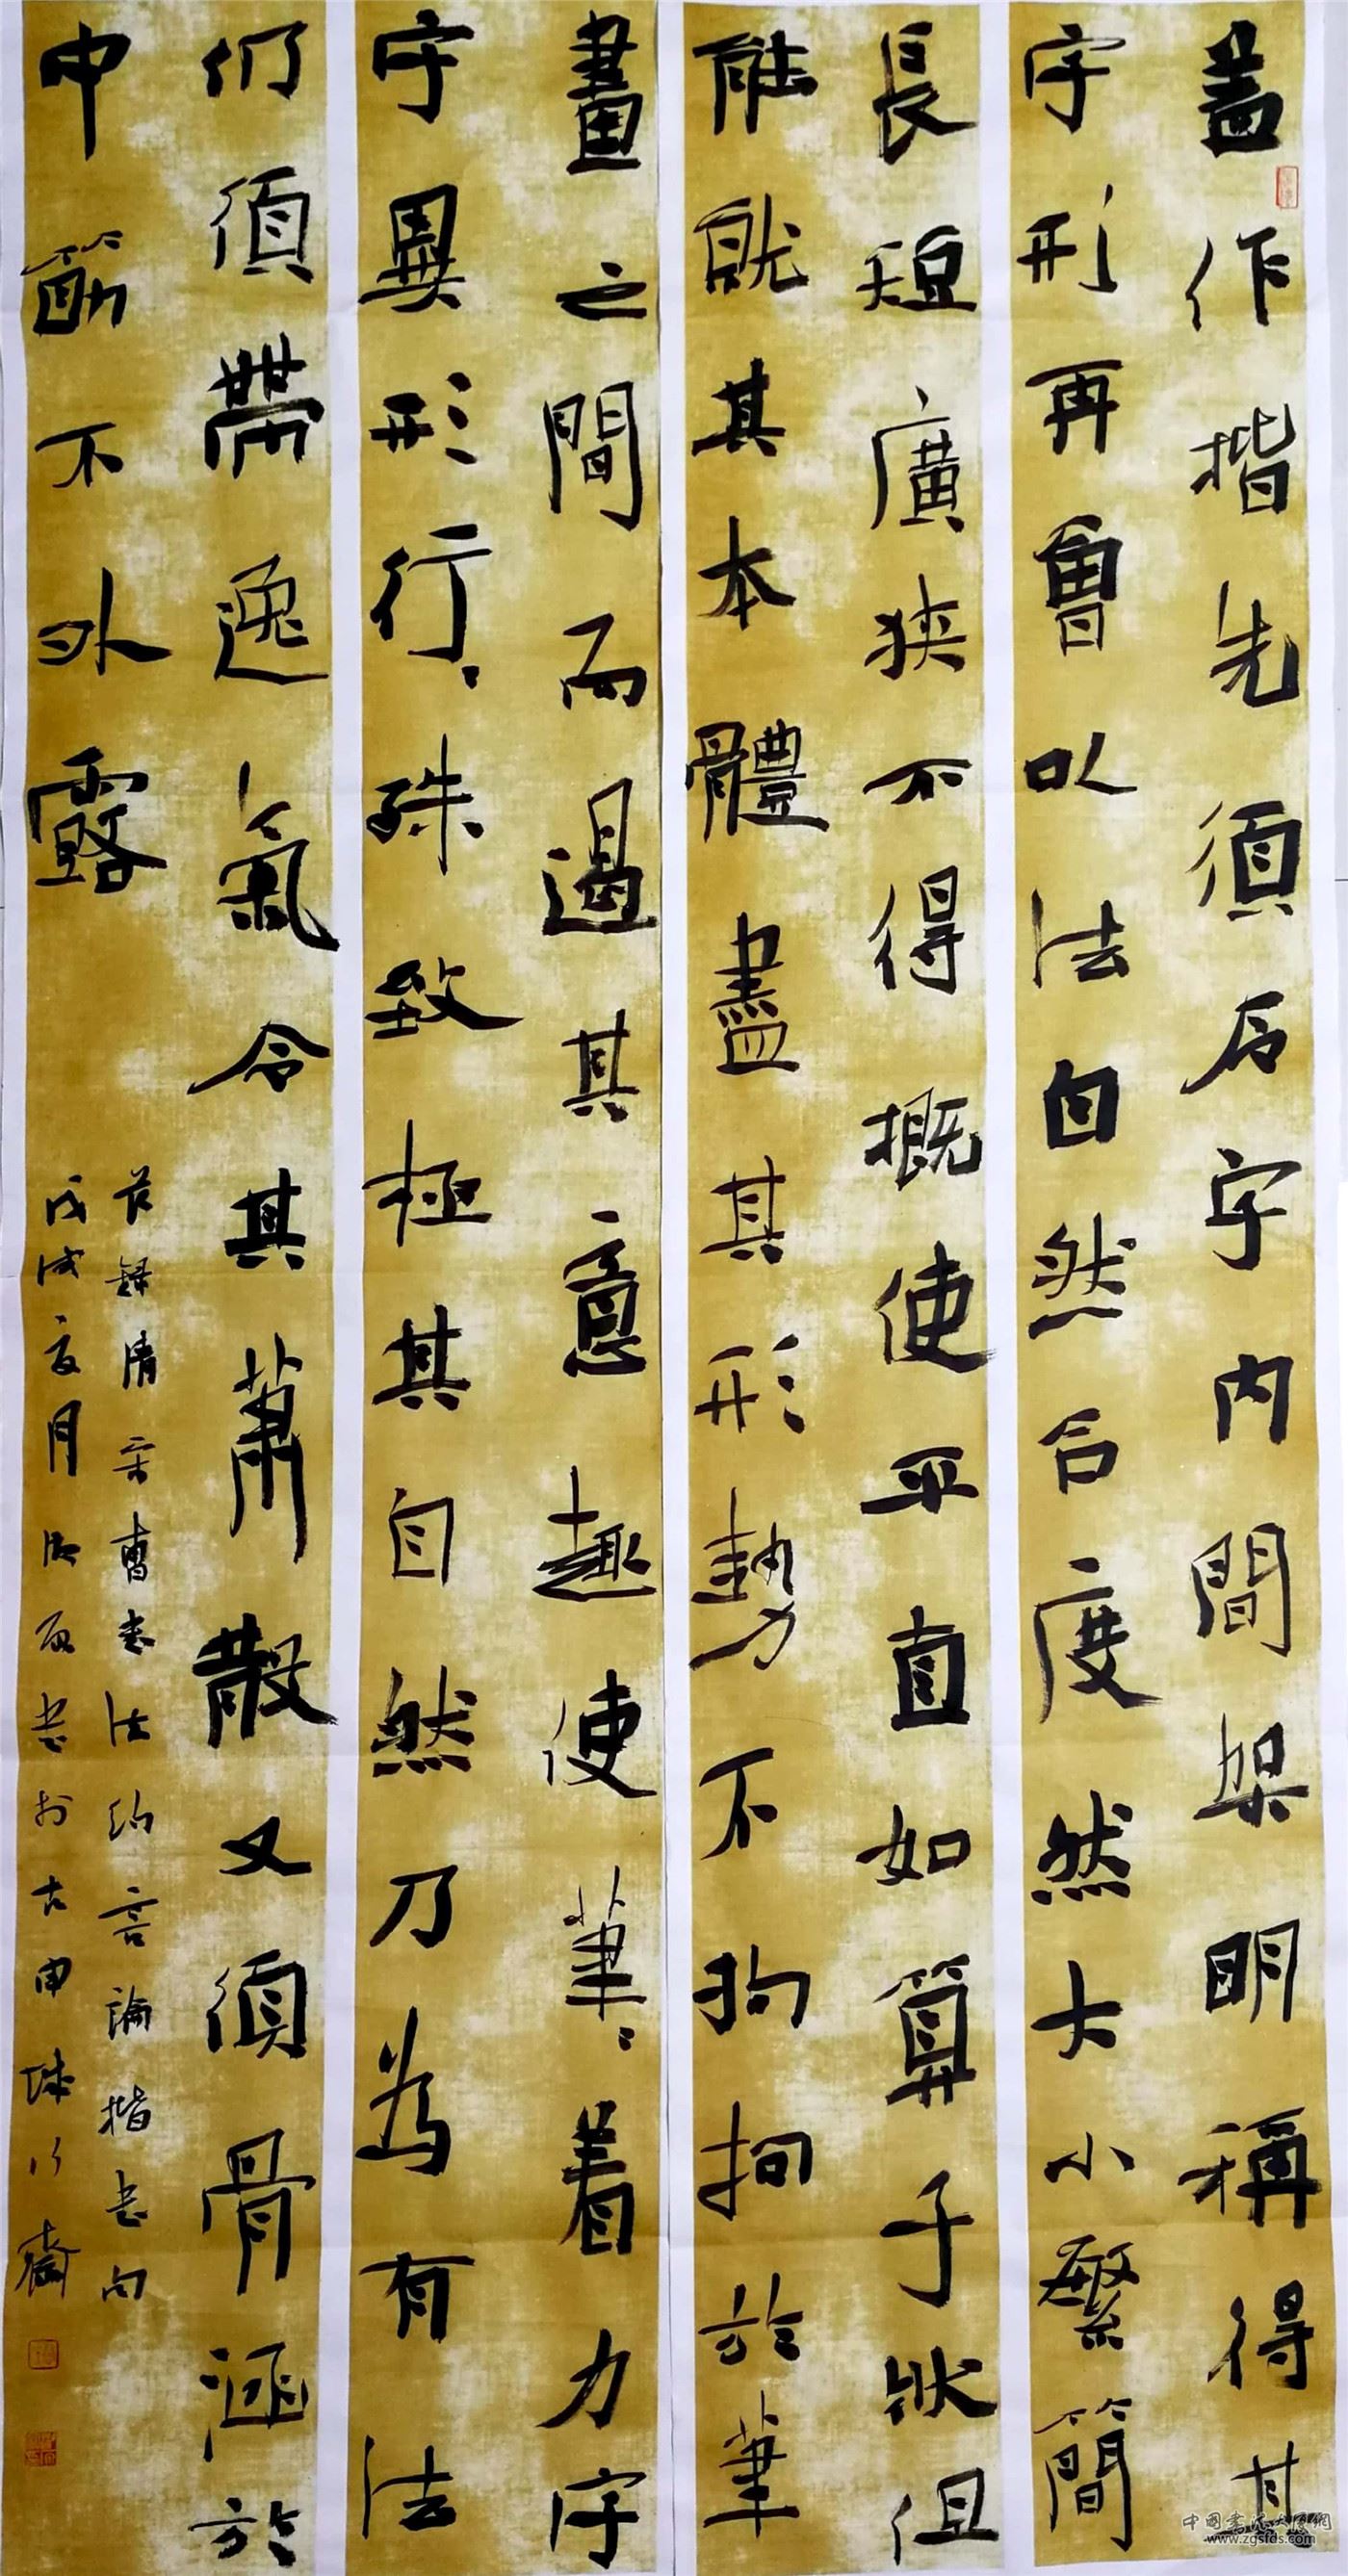 盖作楷先須居字内間架明稱得其
字形再會以法自然合度然大小繁簡
長短廣狹不得概使平直如算子狀但
能就其本體盡其形勢不拘拘於筆
畫之間而遏其意趣使筆〻着力字
字異形行〻殊致極其自然乃為有法
仍須帶逸氣令其蕭散又須骨涵於
中筋不外露
節錄清宋曹書法約言論楷書句
戊戌夏月 書於古申城 齋
中國書法大展網
www.zgsfds.com